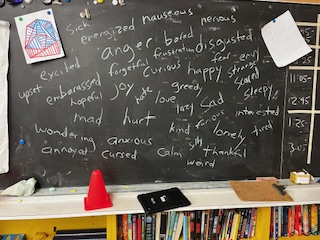 sick energized nauseous nervous
anger bored disgusted
excited forgetful frustration fear envy
upset embarrassed curious happy strange
hopeful joy hate greedy scared
love lazy sad sleepy
mad hurt kind furious lonely tired
wondering anxious
annoyed cursed calm silly thankful
weird
11:05
12:45
1:25
3:05